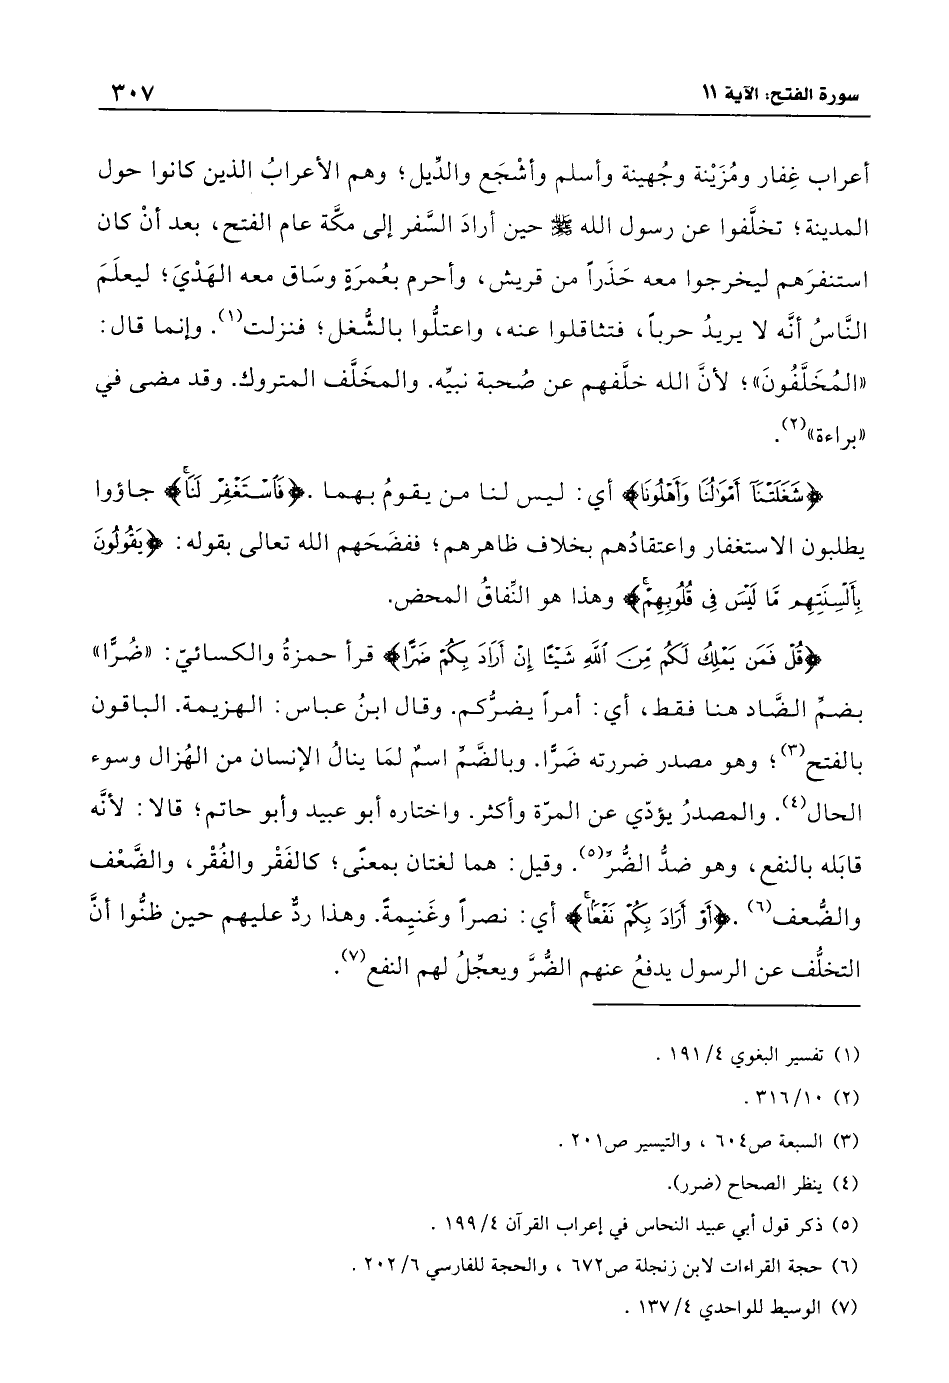 سورة الفتح: الآية ١١ ٣٠٧
أعراب غِفار ومُزَيْنة وجُهينة وأسلم وأشْجَع والدِّيل؛ وهم الأعرابُ الذين كانوا حول
المدينة؛ تخلَّفوا عن رسول الله ﷺ حين أرادَ السَّفر إلى مكَّة عام الفتح، بعد أنْ كان
استنفرَهم ليخرجوا معه حَذَراً من قريش، وأحرم بعُمرَةٍ وسَاق معه الهَدْيَ؛ ليعلَمَ
النَّاسُ أنَّه لا يريدُ حرباً، فتثاقلوا عنه، واعتلُّوا بالشُّغل؛ فنزلت(١). وإنما قال:
«المُخَلَّفُونَ»؛ لأنَّ الله خلَّفهم عن صُحبة نبيِّه. والمخَلَّف المتروك. وقد مضى في
«براءة»(٢).
﴿شَغَلَتْنَآ أَمْوَٰلُنَا وَأَهْلُونَا﴾ أي: ليس لنا من يقومُ بهما. ﴿فَٱسْتَغْفِرْ لَنَاۚ﴾ جاؤوا
يطلبون الاستغفار واعتقادُهم بخلاف ظاهرهم؛ ففضَحَهم الله تعالى بقوله: ﴿يَقُولُونَ
بِأَلْسِنَتِهِم مَّا لَيْسَ فِى قُلُوبِهِمْۚ﴾ وهذا هو النِّفاقُ المحض.
﴿قُلْ فَمَن يَمْلِكُ لَكُم مِّنَ ٱللَّهِ شَيْـًٔا إِنْ أَرَادَ بِكُمْ ضَرًّا﴾ قرأ حمزةُ والكسائيّ: «ضُرًّا»
بضمِّ الضَّاد هنا فقط، أي: أمراً يضرُّكم. وقال ابنُ عباس: الهزيمة. الباقون
بالفتح(٣)؛ وهو مصدر ضررته ضَرًّا. وبالضَّمِّ اسمٌ لمَا ينالُ الإنسان من الهُزال وسوء
الحال(٤). والمصدرُ يؤدّي عن المرّة وأكثر. واختاره أبو عبيد وأبو حاتم؛ قالا: لأنَّه
قابَله بالنفع، وهو ضدُّ الضُّرِّ(٥). وقيل: هما لغتان بمعنًى؛ كالفَقْر والفُقْر، والضَّعْف
والضُّعف(٦). ﴿أَوْ أَرَادَ بِكُمْ نَفْعًاۢۚ﴾ أي: نصراً وغَنِيمةً. وهذا ردٌّ عليهم حين ظنُّوا أنَّ
التخلُّف عن الرسول يدفعُ عنهم الضُّرَّ ويعجِّلُ لهم النفع(٧).
(١) تفسير البغوي ٤/ ١٩١ .
(٢) ١٠/ ٣١٦ .
(٣) السبعة ص٦٠٤ ، والتيسير ص٢٠١ .
(٤) ينظر الصحاح (ضرر).
(٥) ذكر قول أبي عبيد النحاس في إعراب القرآن ٤/ ١٩٩ .
(٦) حجة القراءات لابن زنجلة ص٦٧٢ ، والحجة للفارسي ٦/ ٢٠٢ .
(٧) الوسيط للواحدي ٤/ ١٣٧ .